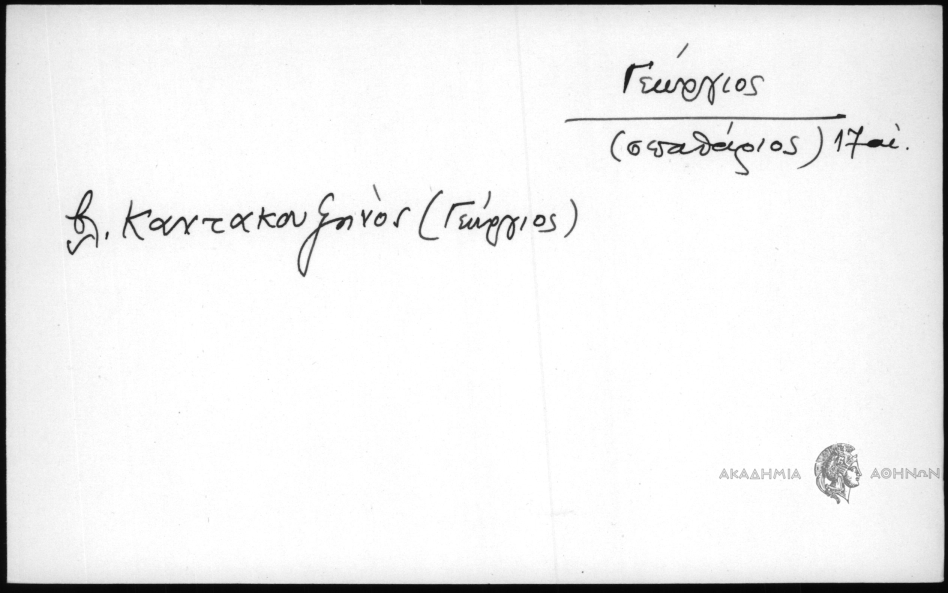 Γεώργιος
(σπαθάριος) 17 αἰ.
βλ. Καντακουζηνὸς (Γεώργιος)
ΑΚΑΔΗΜΙΑ ΑΘΗΝΩΝ